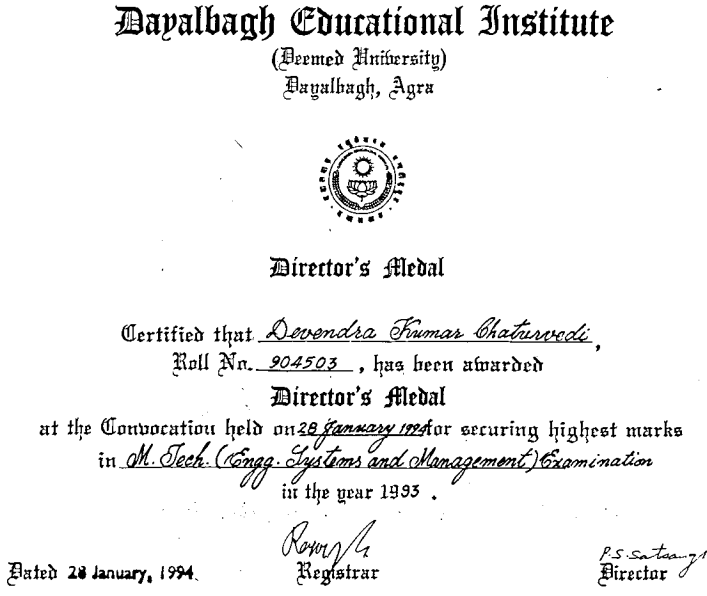 Dayalbagh Educational Institute
(Deemed University)
Dayalbagh, Agra
Director's Medal
Certified that Devendra Kumar Chaturvedi,
Roll No. 904503, has been awarded
Director's Medal
at the Convocation held on 28 January 1994 for securing highest marks
in M. Tech. (Engg. Systems and Management) Examination
in the year 1993.
P.S. Satsangi
Dated 28 January, 1994. Registrar Director